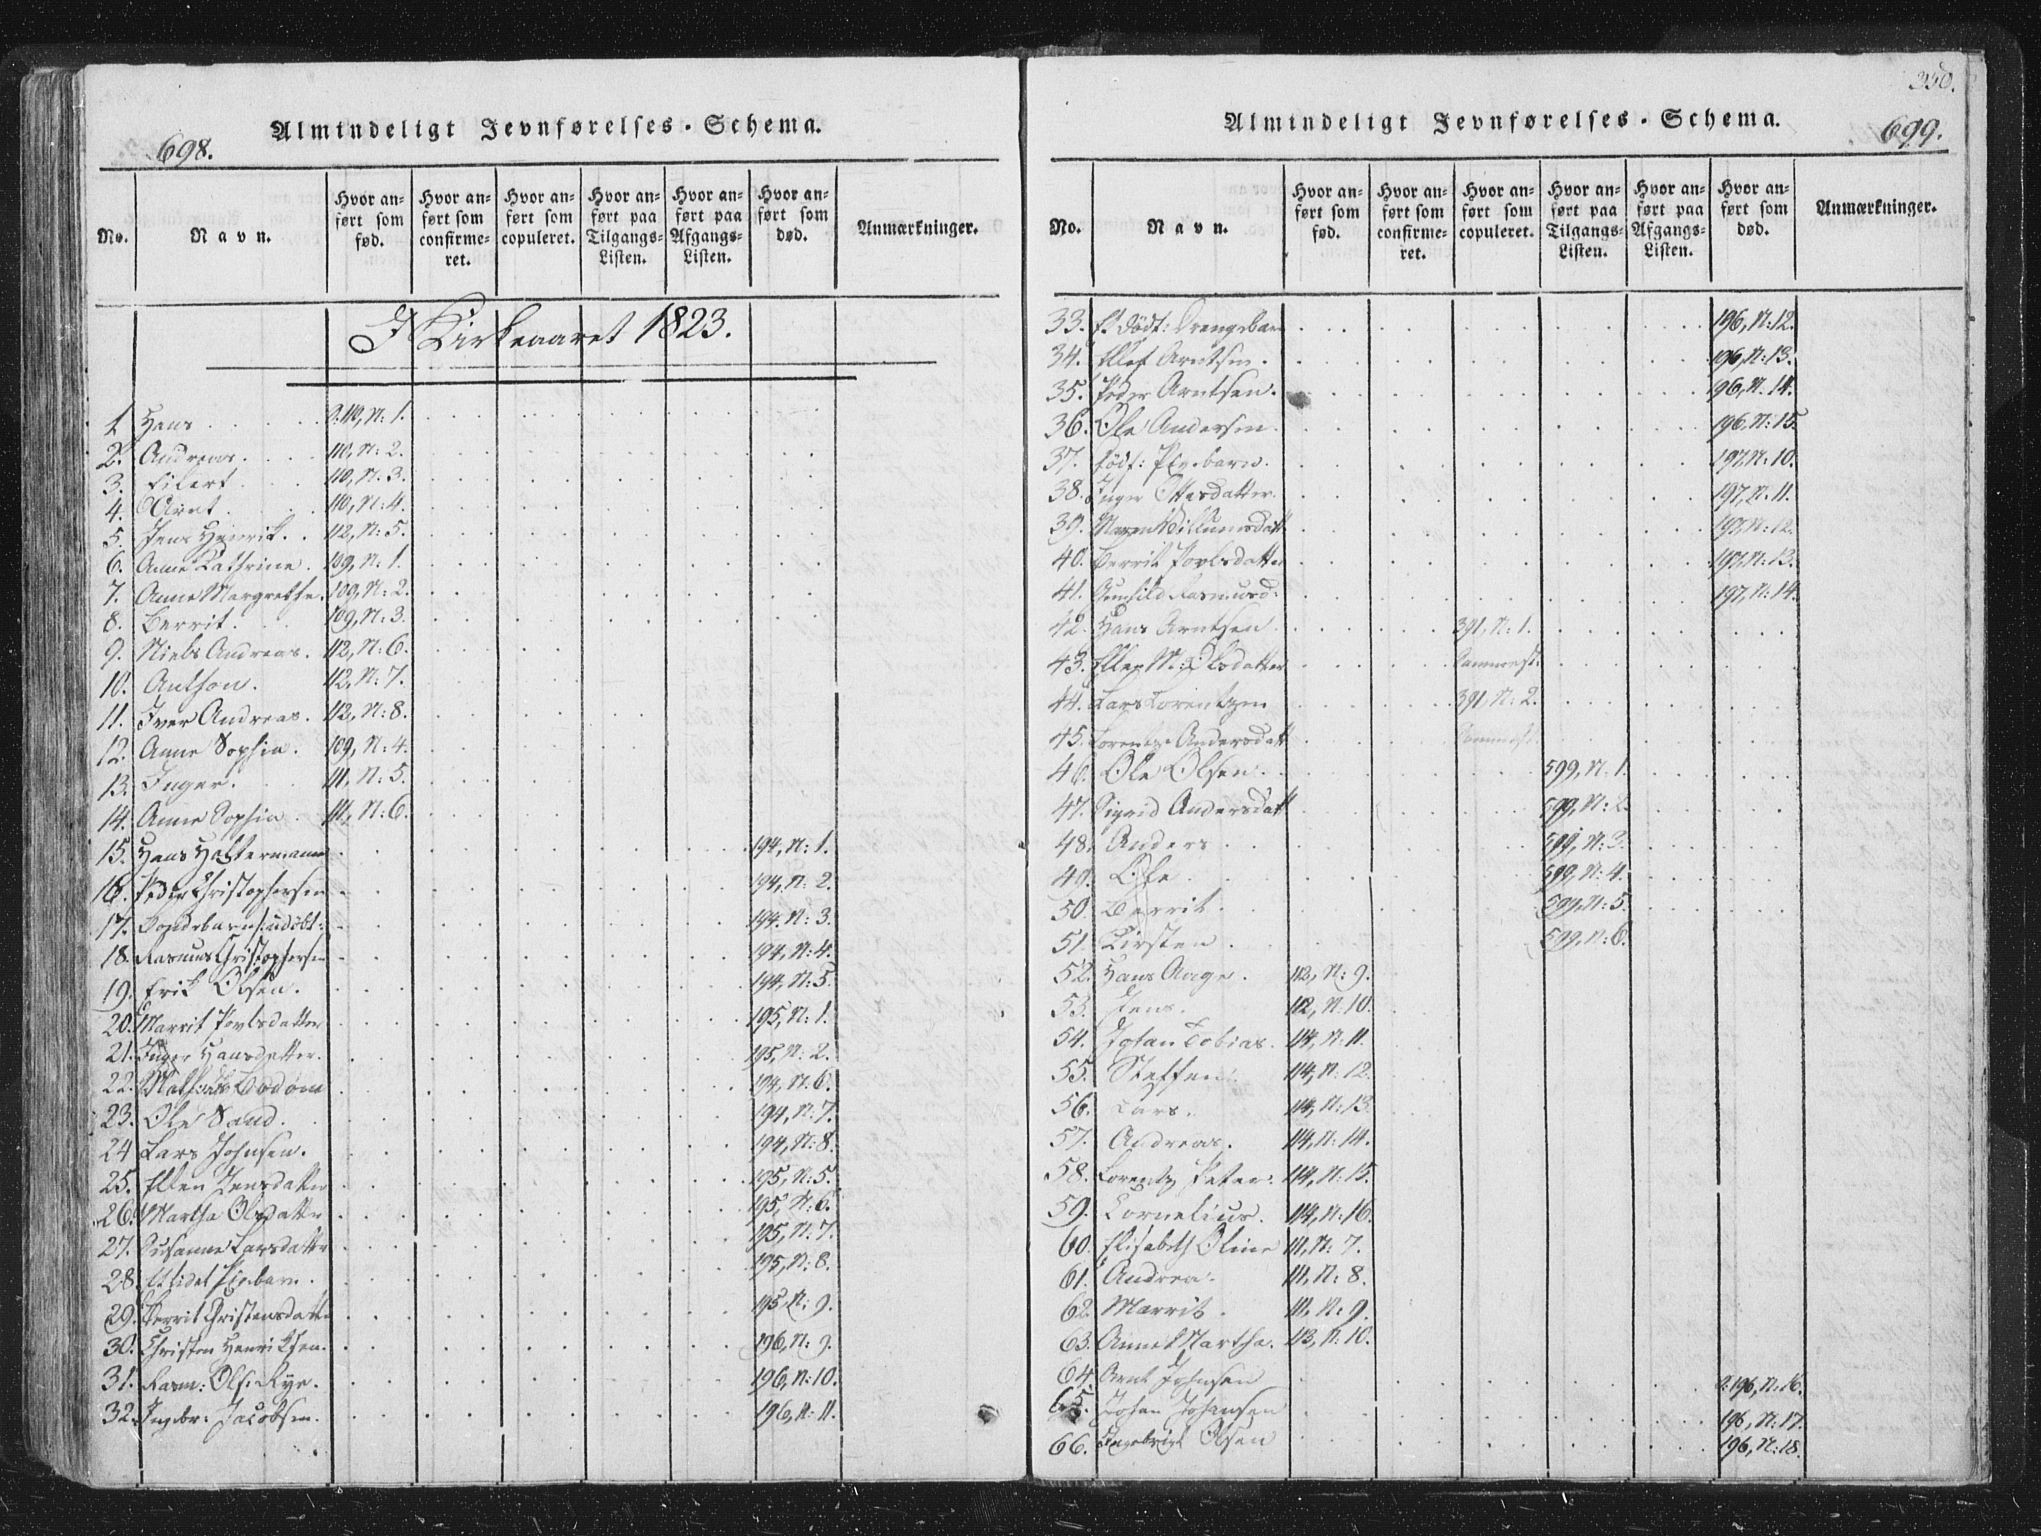 698.
Almindeligt Jevnførelses-Schema.
No.
Navn.
Hvor anført som fød.
Hvor anført som confirmeret.
Hvor anført som copuleret.
Hvor anført paa Tilgangs-Listen.
Hvor anført paa Afgangs-Listen.
Hvor anført som død.
Anmærkninger.
I Kirkeaaret 1823.
1 Hans . . . . . 110, N: 1.
2. Andreas . . . 110, N: 2.
3. Eilert . . . 110, N: 3.
4. Arnt . . . 110, N: 4.
5. Jens Henrik . . 112, N: 5.
6. Anne Cathrine . 109, N: 1.
7. Anne Margrethe. 109, N: 2.
8. Berrit. 109, N: 3.
9. Niels Andreas. 112, N: 6.
10. Anthon. 112, N: 7.
11. Iver Andreas. 112, N: 8.
12. Anne Sophia. 109, N: 4.
13. Inger. 111, N: 5.
14. Anne Sophia 111, N: 6.
15. Hans Holtermann 194, N: 1.
16. Peder Christophersen 194, N: 2.
17. 194. N: 3.
18. Rasmus Christophersen 194, N: 4.
19. Erik Olsen. 194, N: 5.
20. Marrit Povlsdatter 195, N: 1.
21. Inger Hansdatter. 195, N: 2.
22. 194, N: 6.
23. Ole Sand. 194, N: 7.
24 Lars Johnsen. 194, N: 8.
25. Ellen Jensdatter 195, N: 5.
26. Martha Olsdatter 195, N: 6.
27. Susanne Larsdatter 195, N: 7.
28. 195, N: 8.
29. Berrit Christensdatter 195, N: 9.
30. Christen Henriksen. 196, N: 9.
31. Rasm: Ols: Rye. 196, N: 10.
32. Ingebr: Jacobsen. 196, N: 11.
350.
Almindeligt Jevnførelses-Schema.
699.
No.
Navn.
Hvor anført som fød.
Hvor anført som confirmeret.
Hvor anført som copuleret.
Hvor anført paa Tilgangs-Listen.
Hvor anført paa Afgangs-Listen.
Hvor anført som død.
Anmærkninger.
33. 196, N: 12.
34. Ellef Arntsen. 196, N: 13.
35. Peder Arntsen. 196, N. 14.
36. Ole Andersen 196, N: 15.
37. 197, N: 10.
38. Inger Ottesdatter. 197, N: 11.
39. Maren Villumsdatt 197, N: 12.
40. Berrit Povlsdatter 197, N: 13.
41. Gunhild Rasmusd: 197, N: 14.
42. Hans Arntsen 391, N: 1.
43. Sammest:
44. Lars Lorentzen 391, N: 2.
45. Andersdatt Sammest:
46. Ole Olsen. 599, N: 1.
47. Sigrid Andersdatt 599, N: 2.
48. Anders 599, N: 3.
49. Ole 599, N: 4.
50. Berrit. 599, N: 5.
51. Kirsten 599, N: 6.
52. Hans Aage. 112, N: 9.
53. Jens. 112, N: 10.
54. Johan Tobias. 114, N: 11.
55. Steffen 114, N: 12.
56. Lars. 114, N: 13.
57. Andreas. 114, N: 14.
58. Lorentz Peter. 114, N: 15.
59. Cornelius. 114, N: 16.
60. Elisabeth Oline 111, N: 7.
61. Andrea. 111, N: 8.
62. Marrit. 111, N: 9.
63. Anne Martha. 113, N: 10.
64. Arnt Johnsen 196, N. 16.
65. Johan Johansen 196, N: 17.
66. Ingebrigt Olsen 196, N: 18.